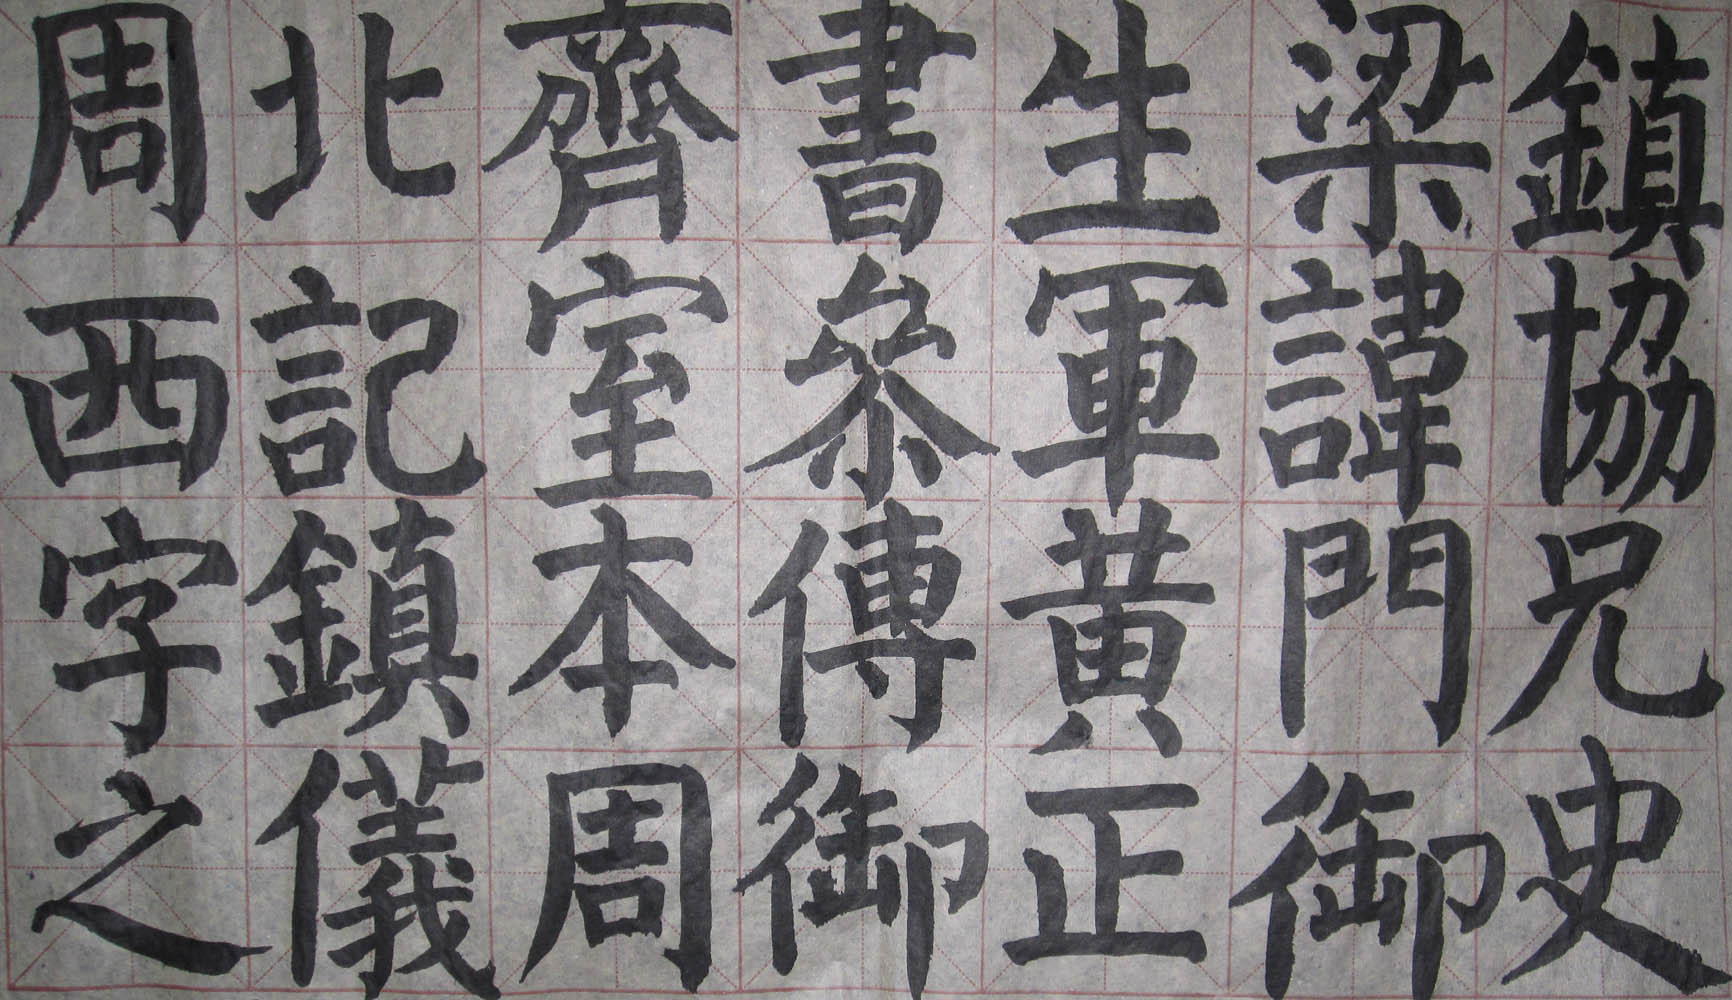 周北齊書生梁鎮
西記室叅軍諱協
字鎮本傳黃門兄
之儀周御正御史